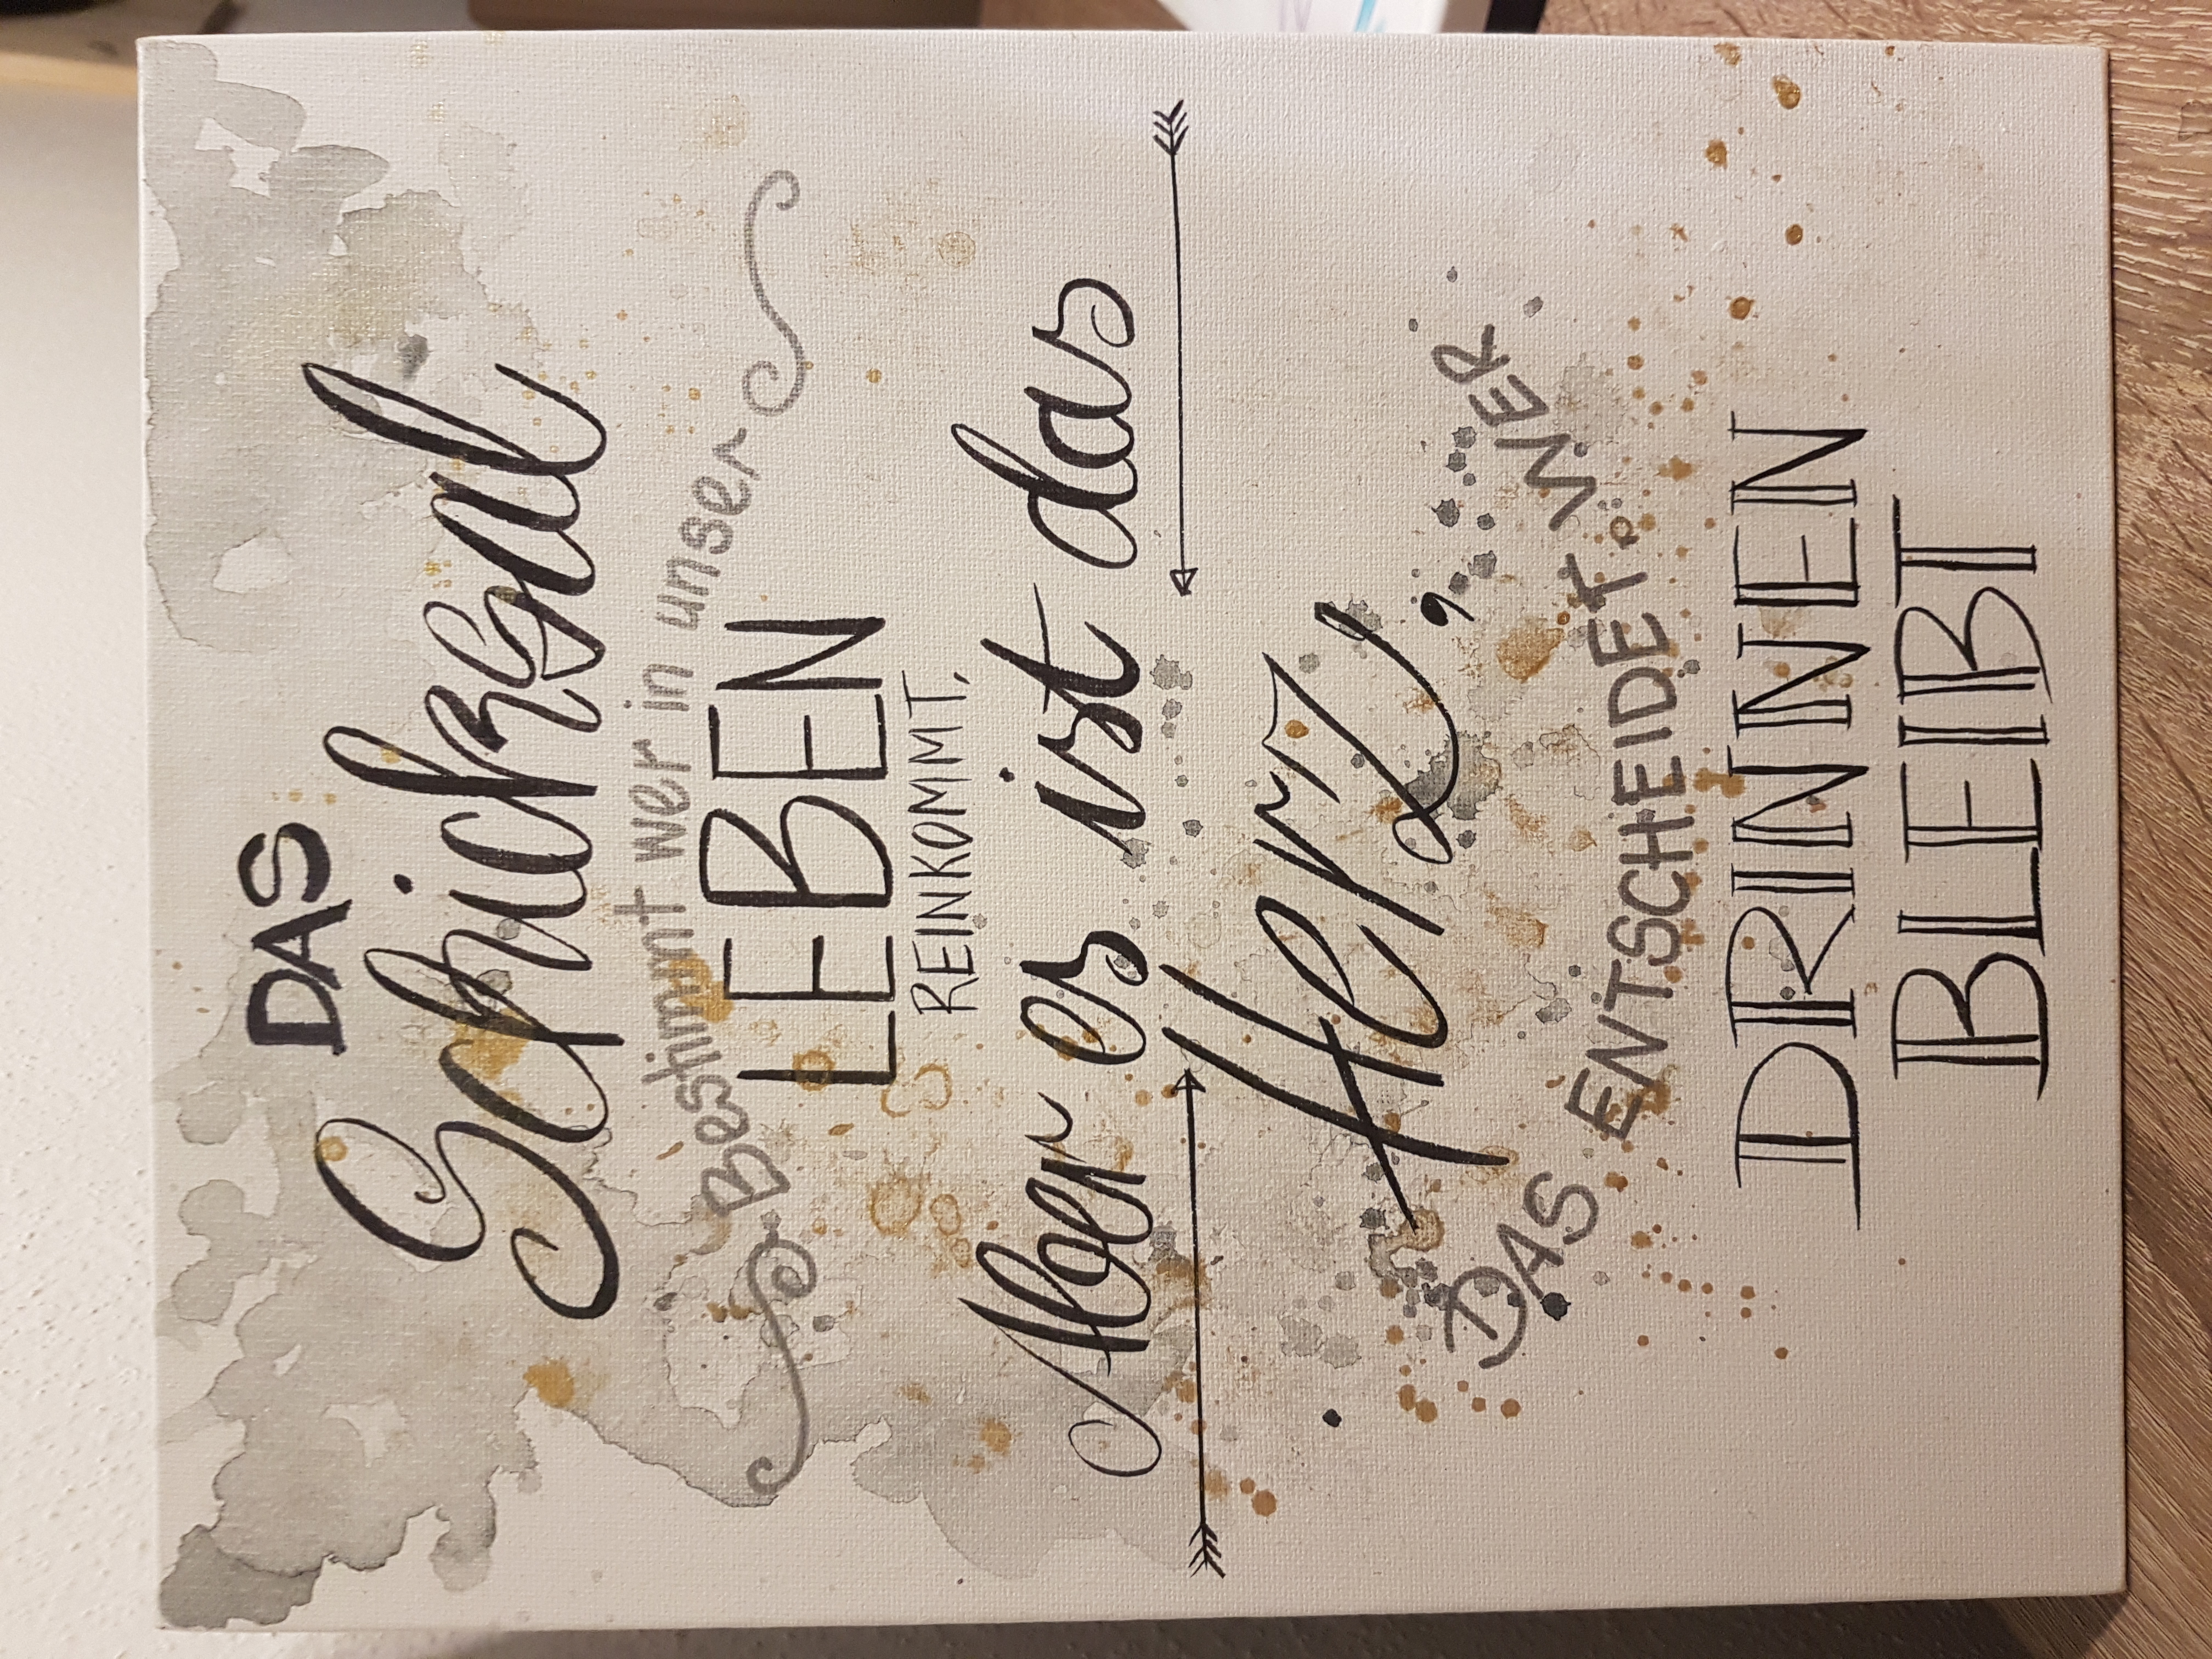 DAS
Schicksal
Bestimmt wer in unser
LEBEN
REINKOMMT,
Aber es ist das
Herz,
DAS ENTSCHEIDET, WER
DRINNEN
BLEIBT